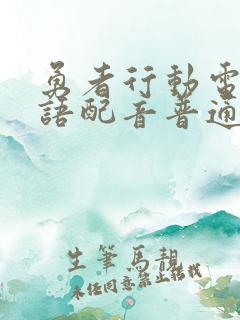 勇者行動電
語配音普通
生筆馬靚
未經同意禁止轉載